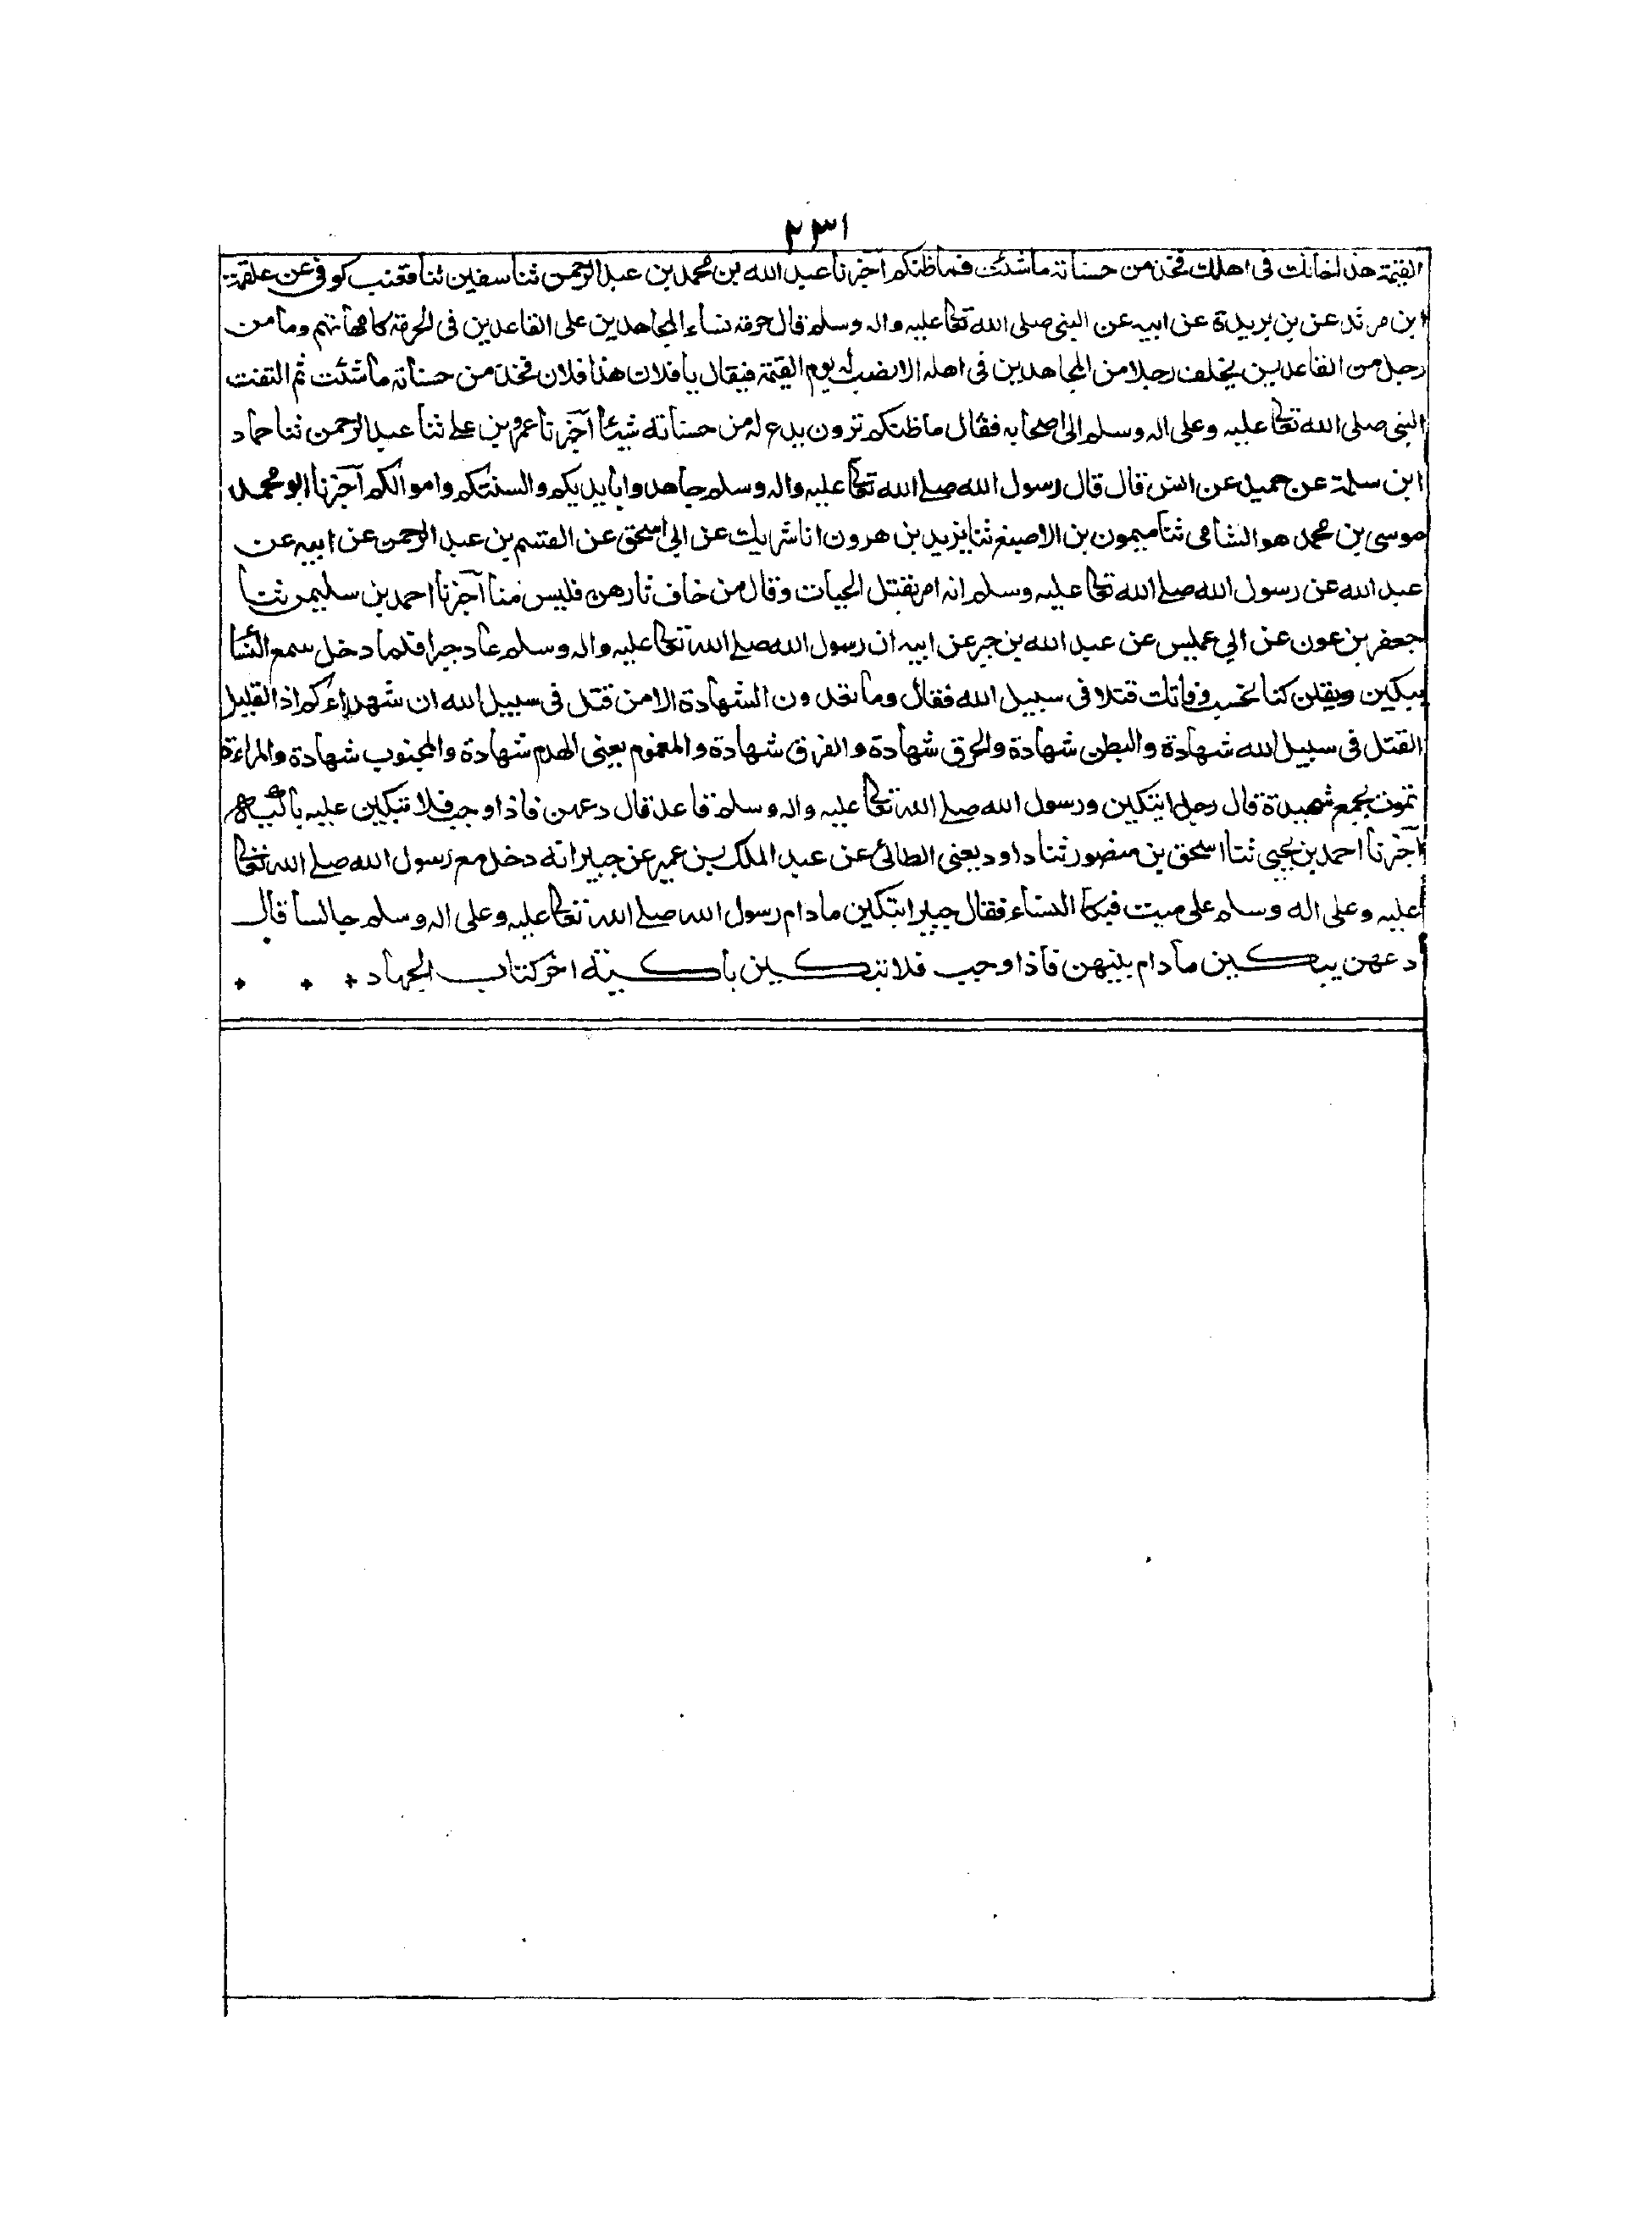 ٢٣١
القيمة هذا خانك في اهلك فخذ من حسناته ما شئت فما ظنكم آخبرنا عبد الله بن محمد بن عبد الرحمن ثنا سفين ثنا قعنب كوفي عن علقمة
ابن مرثد عن بن بريدة عن ابيه عن النبي صلى الله تعالى عليه واله وسلم قال حرمة نساء المجاهدين على القاعدين في الحرمة كامهاتهم وما من
رجل من القاعدين يخلف رجلا من المجاهدين في اهله الا نصب له يوم القيمة فيقال يا فلان هذا فلان فخذ من حسناته ما شئت ثم التفت
النبي صلى الله تعالى عليه وعلى اله وسلم الى اصحابه فقال ما ظنكم ترون يدع له من حسناته شيئا آخبرنا عمرو بن علي ثنا عبد الرحمن ثنا حماد
ابن سلمة عن حميد عن انس قال قال رسول الله صلى الله تعالى عليه واله وسلم جاهدوا بايديكم والسنتكم واموالكم آخبرنا ابو محمد
موسى بن محمد هو الشامي ثنا ميمون بن الاصبغ ثنا يزيد بن هرون انا شريك عن ابي اسحق عن القسم بن عبد الرحمن عن ابيه عن
عبد الله عن رسول الله صلى الله تعالى عليه وسلم انه امر بقتل الحيات وقال من خاف ثارهن فليس منا آخبرنا احمد بن سليمن ثنا
جعفر بن عون عن ابي عميس عن عبد الله بن جبر عن ابيه ان رسول الله صلى الله تعالى عليه واله وسلم عاد جبرا فلما دخل سمع النساء
يبكين ويقلن كنا نحسب وفاتك قتلا في سبيل الله فقال وما تعدون الشهادة الا من قتل في سبيل الله ان شهداءكم اذا لقليل
القتل في سبيل الله شهادة والبطن شهادة والحرق شهادة والغرق شهادة والمغموم يعني الهدم شهادة والمجنوب شهادة والمراءة
تموت بجمع شهيدة قال رجل اتبكين ورسول الله صلى الله تعالى عليه واله وسلم قاعد قال دعهن فاذا وجب فلا تبكين عليه باكية
آخبرنا احمد بن يحيى ثنا اسحق بن منصور ثنا داود يعني الطائي عن عبد الملك بن عمير عن جبير انه دخل مع رسول الله صلى الله تعالى
عليه وعلى اله وسلم على ميت فبكا النساء فقال جبير اتبكين ما دام رسول الله صلى الله تعالى عليه وعلى اله وسلم جالسا قال
دعهن يبكين ما دام بينهن فاذا وجب فلا تبكين باكية اخر كتاب الجهاد